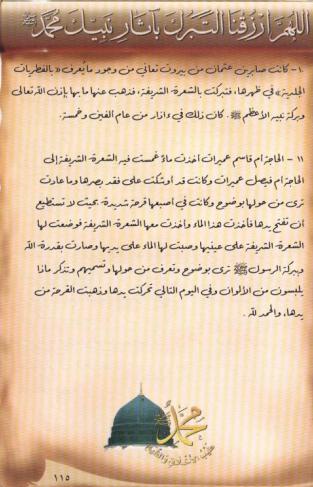 اللهم ارزقنا التبرك بآثار نبيك محمد ﷺ
١٠ - كانت صابرين عثمان من بيروت تعاني من وجود ما يعرف «بالفطريات
الجلدية» في ظهرها، فتبركت بالشعرة الشريفة، فذهب عنها ما بها بإذن الله تعالى
وبركة نبيه الأعظم ﷺ. كان ذلك في ءاذار من عام ألفين وخمسة.
١١ - الحاجة أم قاسم عميرات أخذت ماءً غمست فيه الشعرة الشريفة إلى
الحاجة أم فيصل عميرات وكانت قد أوشكت على فقد بصرها وما عادت
ترى من حولها بوضوح وكانت في أصبعها قرحة شديدة بحيث لا تستطيع
أن تفتح يدها فأخذت هذا الماء وأخذت معها الشعرة الشريفة فوضعت لها
الشعرة الشريفة على عينيها وصبت لها الماء على يديها وصارت بقدرة الله
وببركة الرسول ﷺ ترى بوضوح وتعرف من حولها وتسميهم وتذكر ماذا
يلبسون من الألوان وفي اليوم التالي تحركت يدها وذهبت القرحة من
يدها، والحمد لله.
محمد ﷺ
١١٥